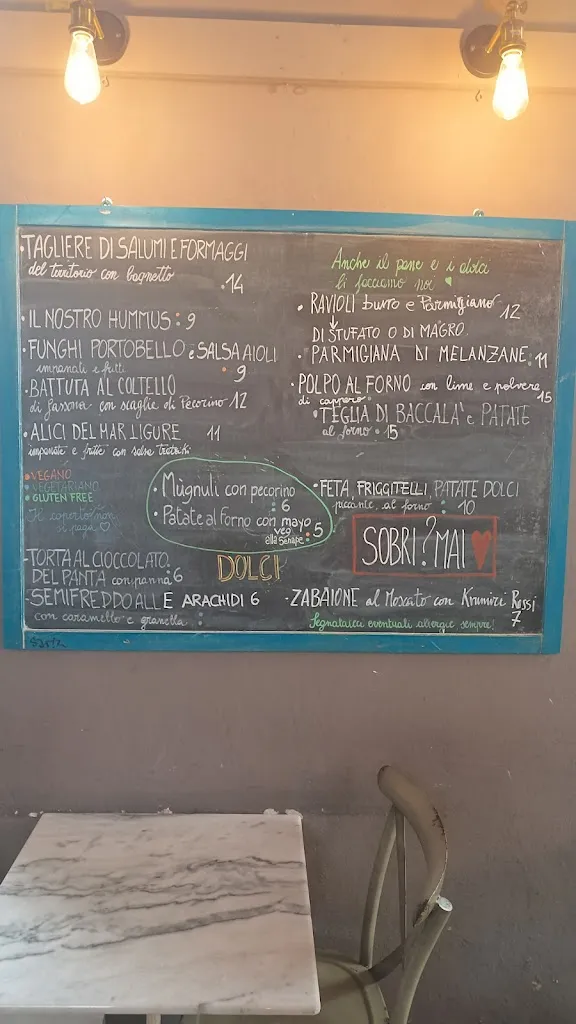 • TAGLIERE DI SALUMI E FORMAGGI
del territorio con bagnetto
• 14
• IL NOSTRO HUMMUS : 9
• FUNGHI PORTOBELLO e SALSA AIOLI
impanati e fritti • 9
• BATTUTA AL COLTELLO
di fassona con scaglie di Pecorino • 12
• ALICI DEL MAR LIGURE 11
impanate e fritte con salsa
• VEGANO
• VEGETARIANO
• GLUTEN FREE
Il coperto non
si paga ♡
Anche il pane e i dolci
li facciamo noi ♥
• RAVIOLI burro e Parmigiano 12
DI STUFATO O DI MAGRO
• PARMIGIANA DI MELANZANE : 11
• POLPO AL FORNO con lime e polvere
di cappero 15
• TEGLIA DI BACCALA' e PATATE
al forno : 15
• Mùgnuli con pecorino
: 6
• Patate al forno con mayo
veg
alla senape : 5
• FETA, FRIGGITELLI, PATATE DOLCI
piccante al forno : 10
SOBRI? MAI ♥
DOLCI
- TORTA AL CIOCCOLATO
DEL PANTA con panna : 6
- SEMIFREDDO ALLE ARACHIDI 6
con caramello e granella
- ZABAIONE al Moscato con Krumiri Rossi
7
Segnalateci eventuali allergie sempre!